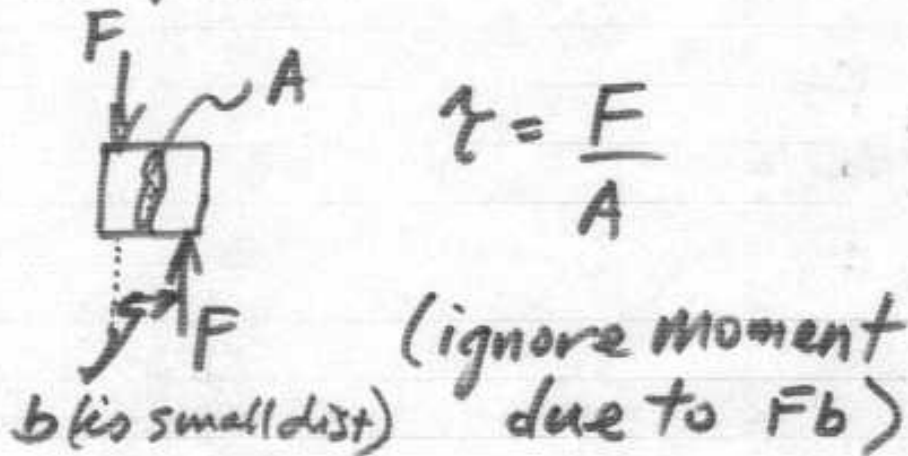 F
A
τ = F/A
F
b (is small dist)
(ignore moment
due to Fb)